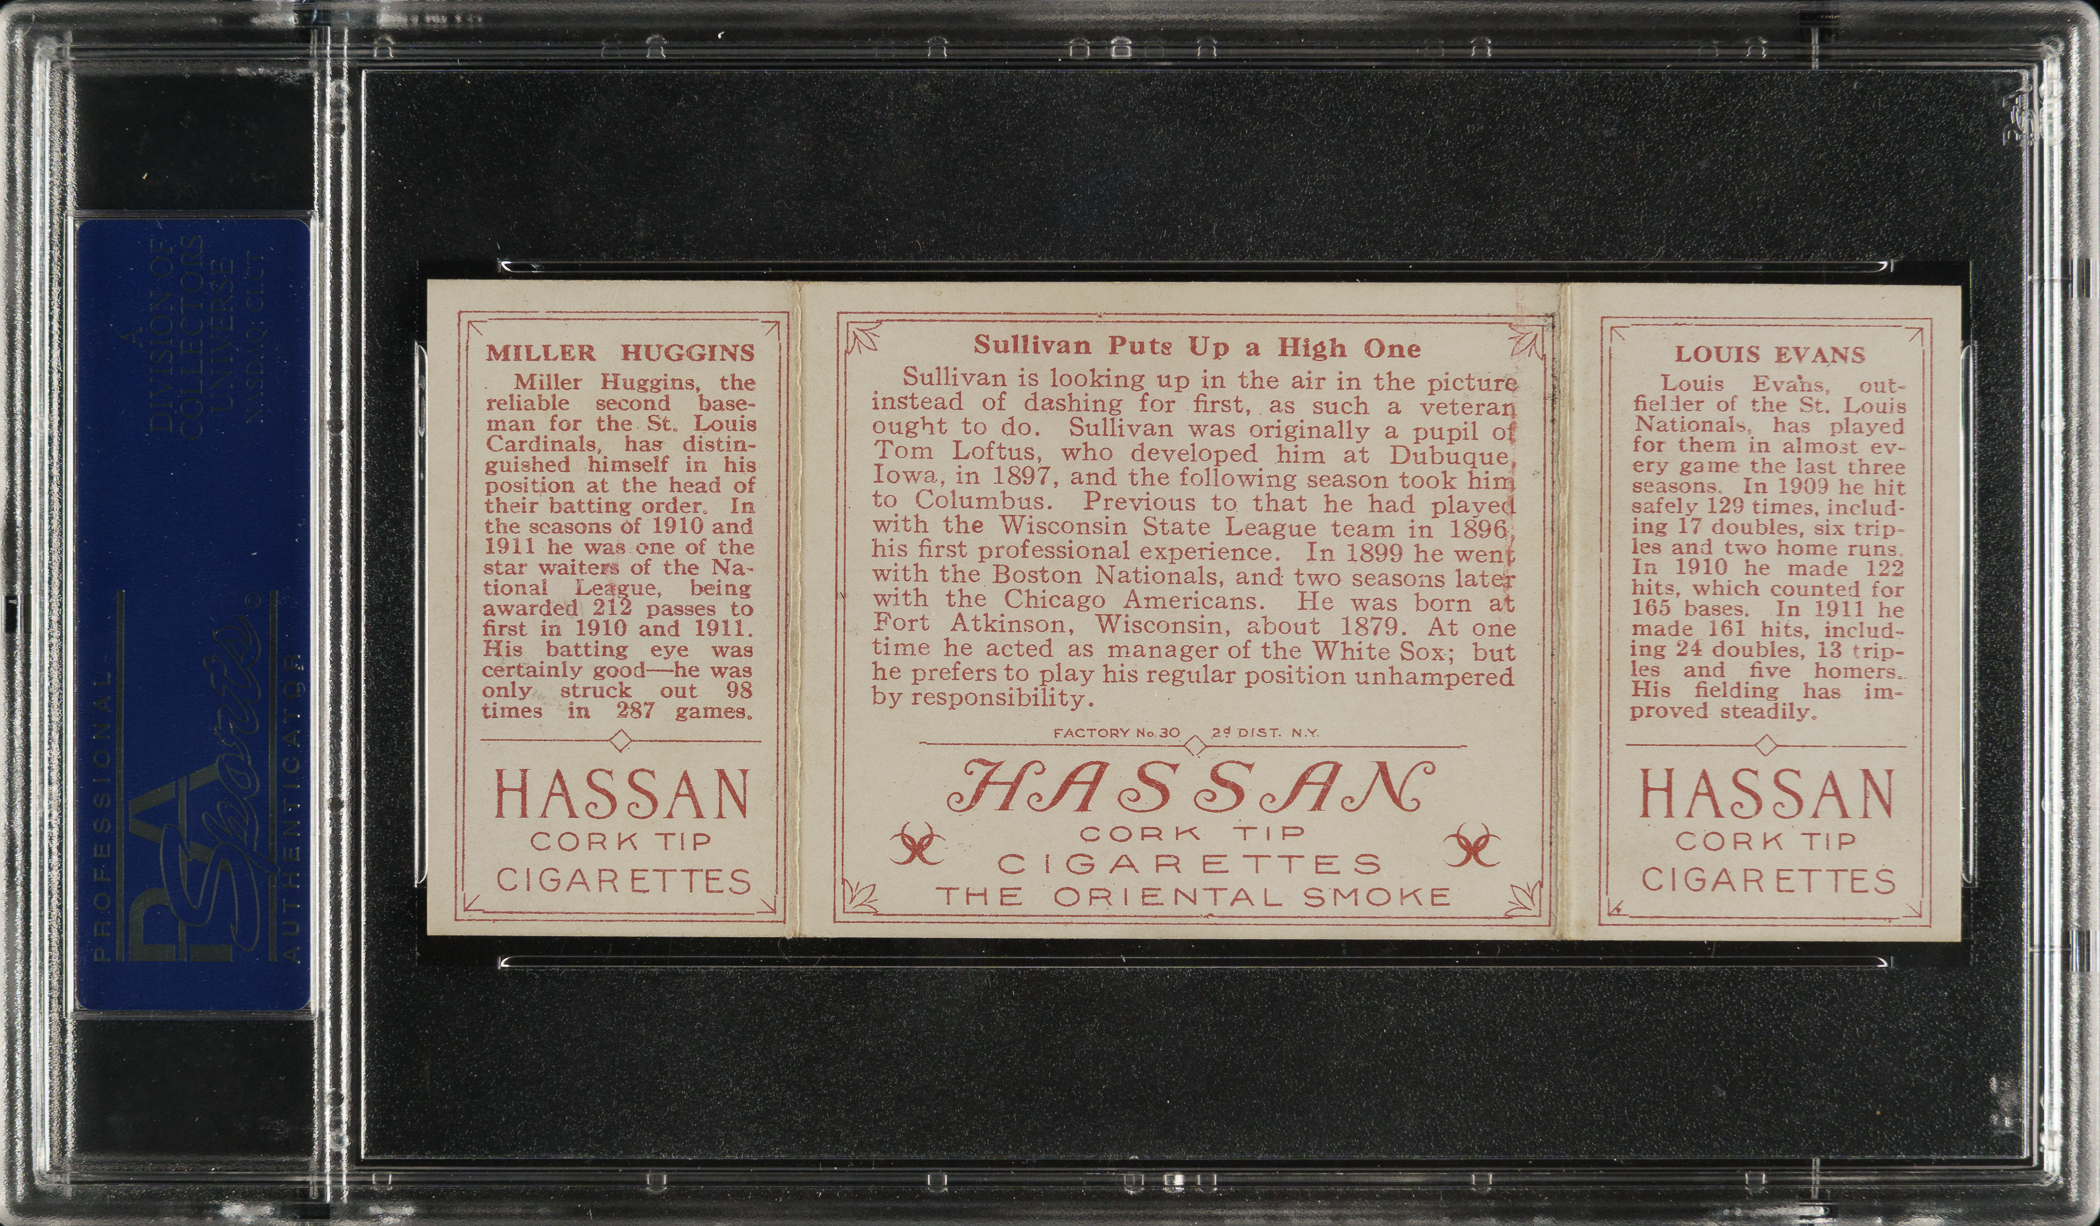 A
DIVISION OF
COLLECTORS
UNIVERSE
NASDAQ: CLCT
PROFESSIONAL
PSA
Sports
AUTHENTICATOR
MILLER HUGGINS
Miller Huggins, the
reliable second base-
man for the St. Louis
Cardinals, has distin-
guished himself in his
position at the head of
their batting order. In
the seasons of 1910 and
1911 he was one of the
star waiters of the Na-
tional League, being
awarded 212 passes to
first in 1910 and 1911.
His batting eye was
certainly good—he was
only struck out 98
times in 287 games.
HASSAN
CORK TIP
CIGARETTES
Sullivan Puts Up a High One
Sullivan is looking up in the air in the picture
instead of dashing for first, as such a veteran
ought to do. Sullivan was originally a pupil of
Tom Loftus, who developed him at Dubuque,
Iowa, in 1897, and the following season took him
to Columbus. Previous to that he had played
with the Wisconsin State League team in 1896,
his first professional experience. In 1899 he went
with the Boston Nationals, and two seasons later
with the Chicago Americans. He was born at
Fort Atkinson, Wisconsin, about 1879. At one
time he acted as manager of the White Sox; but
he prefers to play his regular position unhampered
by responsibility.
FACTORY No. 30 2d DIST. N.Y.
HASSAN
CORK TIP
CIGARETTES
THE ORIENTAL SMOKE
LOUIS EVANS
Louis Evans, out-
fielder of the St. Louis
Nationals, has played
for them in almost ev-
ery game the last three
seasons. In 1909 he hit
safely 129 times, includ-
ing 17 doubles, six trip-
les and two home runs.
In 1910 he made 122
hits, which counted for
165 bases. In 1911 he
made 161 hits, includ-
ing 24 doubles, 13 trip-
les and five homers.
His fielding has im-
proved steadily.
HASSAN
CORK TIP
CIGARETTES
PSA